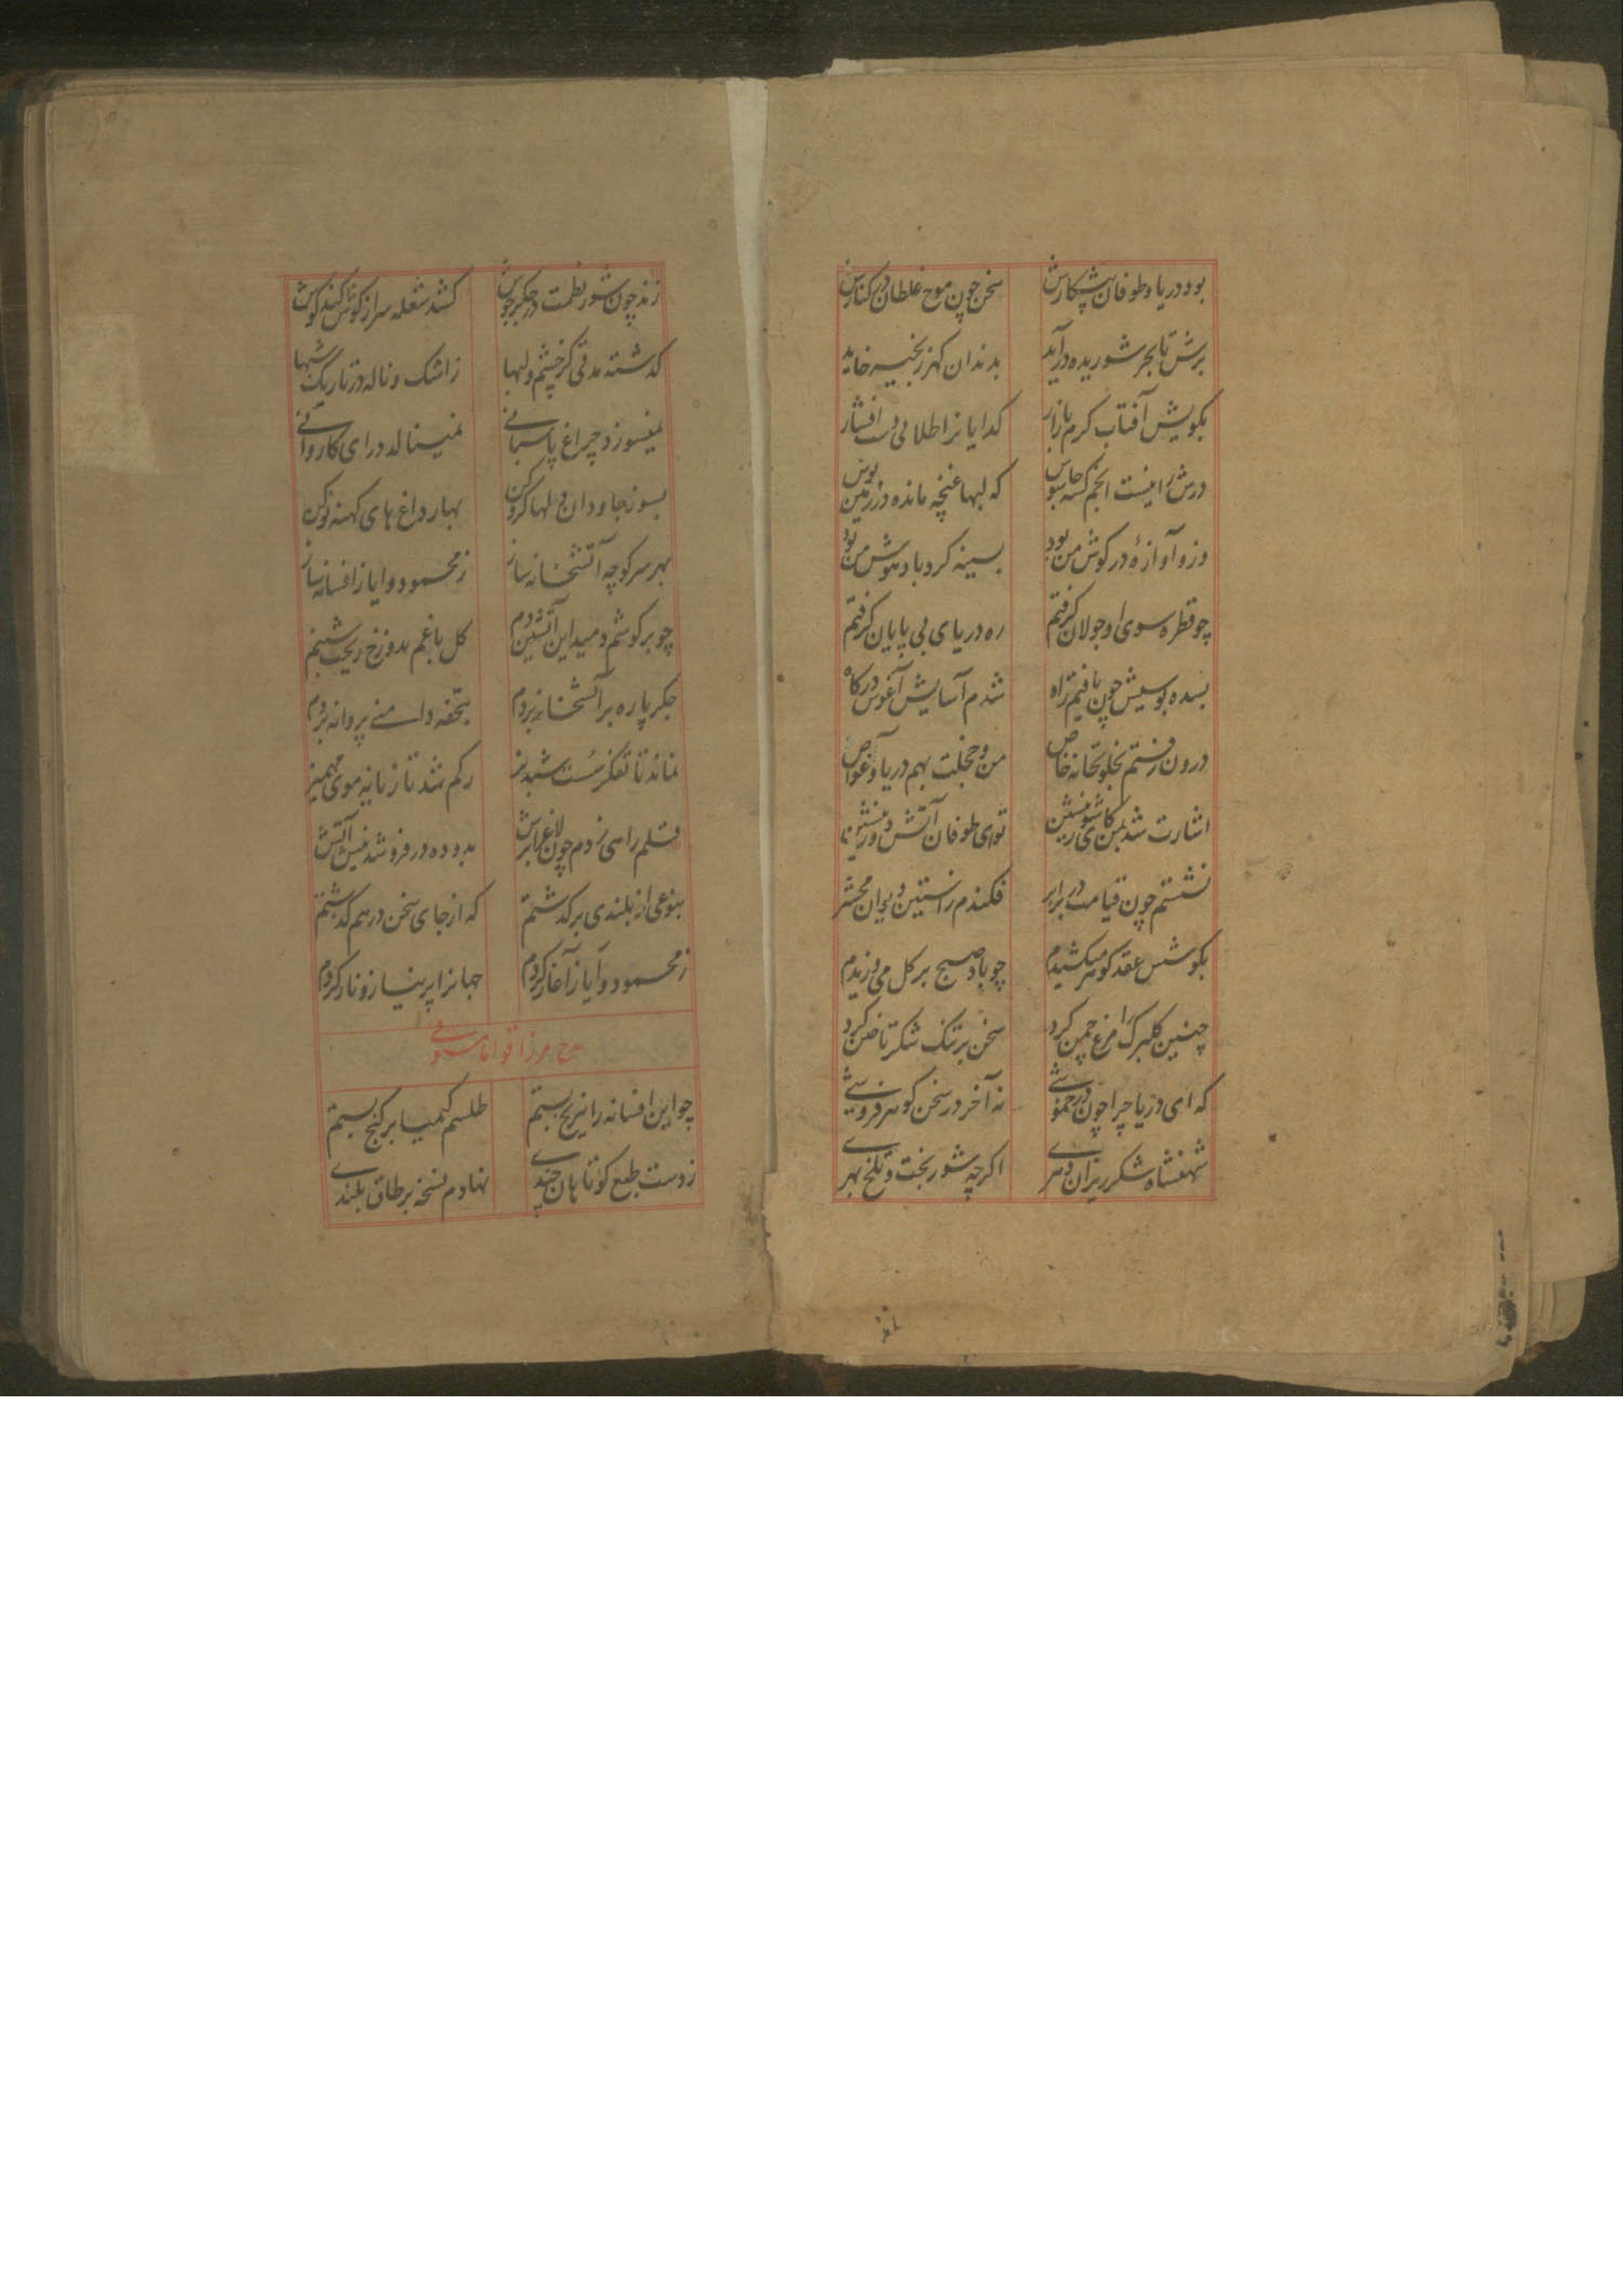 بود دریا و طوفان پیشکارش سخن چون موج غلطان در کنارش
برش تا بحر شوریده درآید بدندان گهر زنجیر خاید
بکویش آفتاب کرم بازار کدایانرا طلا لی دست افشار
درش را نیست انجم کسه جاسوس که لبها غنچه مانده در زمین بوس
وزو آوازهٔ در کوش من بود بسینه کرد باد هوش من بود
چو قطره سوی او جولان کرفتم ره دریای بی پایان کرفتم
بسده بوسیش چون یافتم راه شدم آسایش آغوش درکاه
درون رفتم بخلوتخانه خاص من و خجلت بهم دریا و غواص
اشارت شد بمن کاینجا ی بنشین توای طوفان آتش دور بنشین
نشستم چون قیامت در برابر فکندم راستین دیوان محشر
بکوشش عقد کوهر میکشیدم چو باد صبح بر کل می وزیدم
چنین کلبرک را مرغ چمن کرد سخن بر تنک شکر تاختن کرد
که ای دریا چرا چون در خموشی نه آخر در سخن کوهر فروشی
شهنشاه شکرریزان دهری اکرچه شوربخت و تلخ بهری
زند چون شور نظمت در جکر جوش کشد شعله سر از کوش کند کوش
کذشته مدتی کز چشم و لبها ز اشک و ناله در تاریک شبها
نمیسوزد چراغ پاسبانی نمینالد درای کاروانی
بسوز جاودان دلها کرو کن بهار داغ های کهنه نو کن
بهر سر کوچه آتشخانه ساز ز محمود و ایاز افسانه ساز
چو بر کوشم دمید این آتشین دم کل باغم بدوزخ ریخت شبنم
جکر پاره بر آتشخانه بردم بتحفه دامنی پروانه بردم
نماند تا تفکر سست شبدیز رکم شد تازیانه موی مهمیز
قلم را سی زدم چون لاغر آتش بدوده در فرو شد نیش آتش
بنوعی از بلندی برکذشتم که از جای سخن در هم کذشتم
ز محمود و ایاز آغاز کردم جهانرا پر نیاز و ناز کردم
مدح مرزا قواما
چو این افسانه را نیرنج بستم طلسم کیمیا بر کنج بستم
ز دست طبع کوتاهان چندی نهادم نسخه بر طاق بلندی